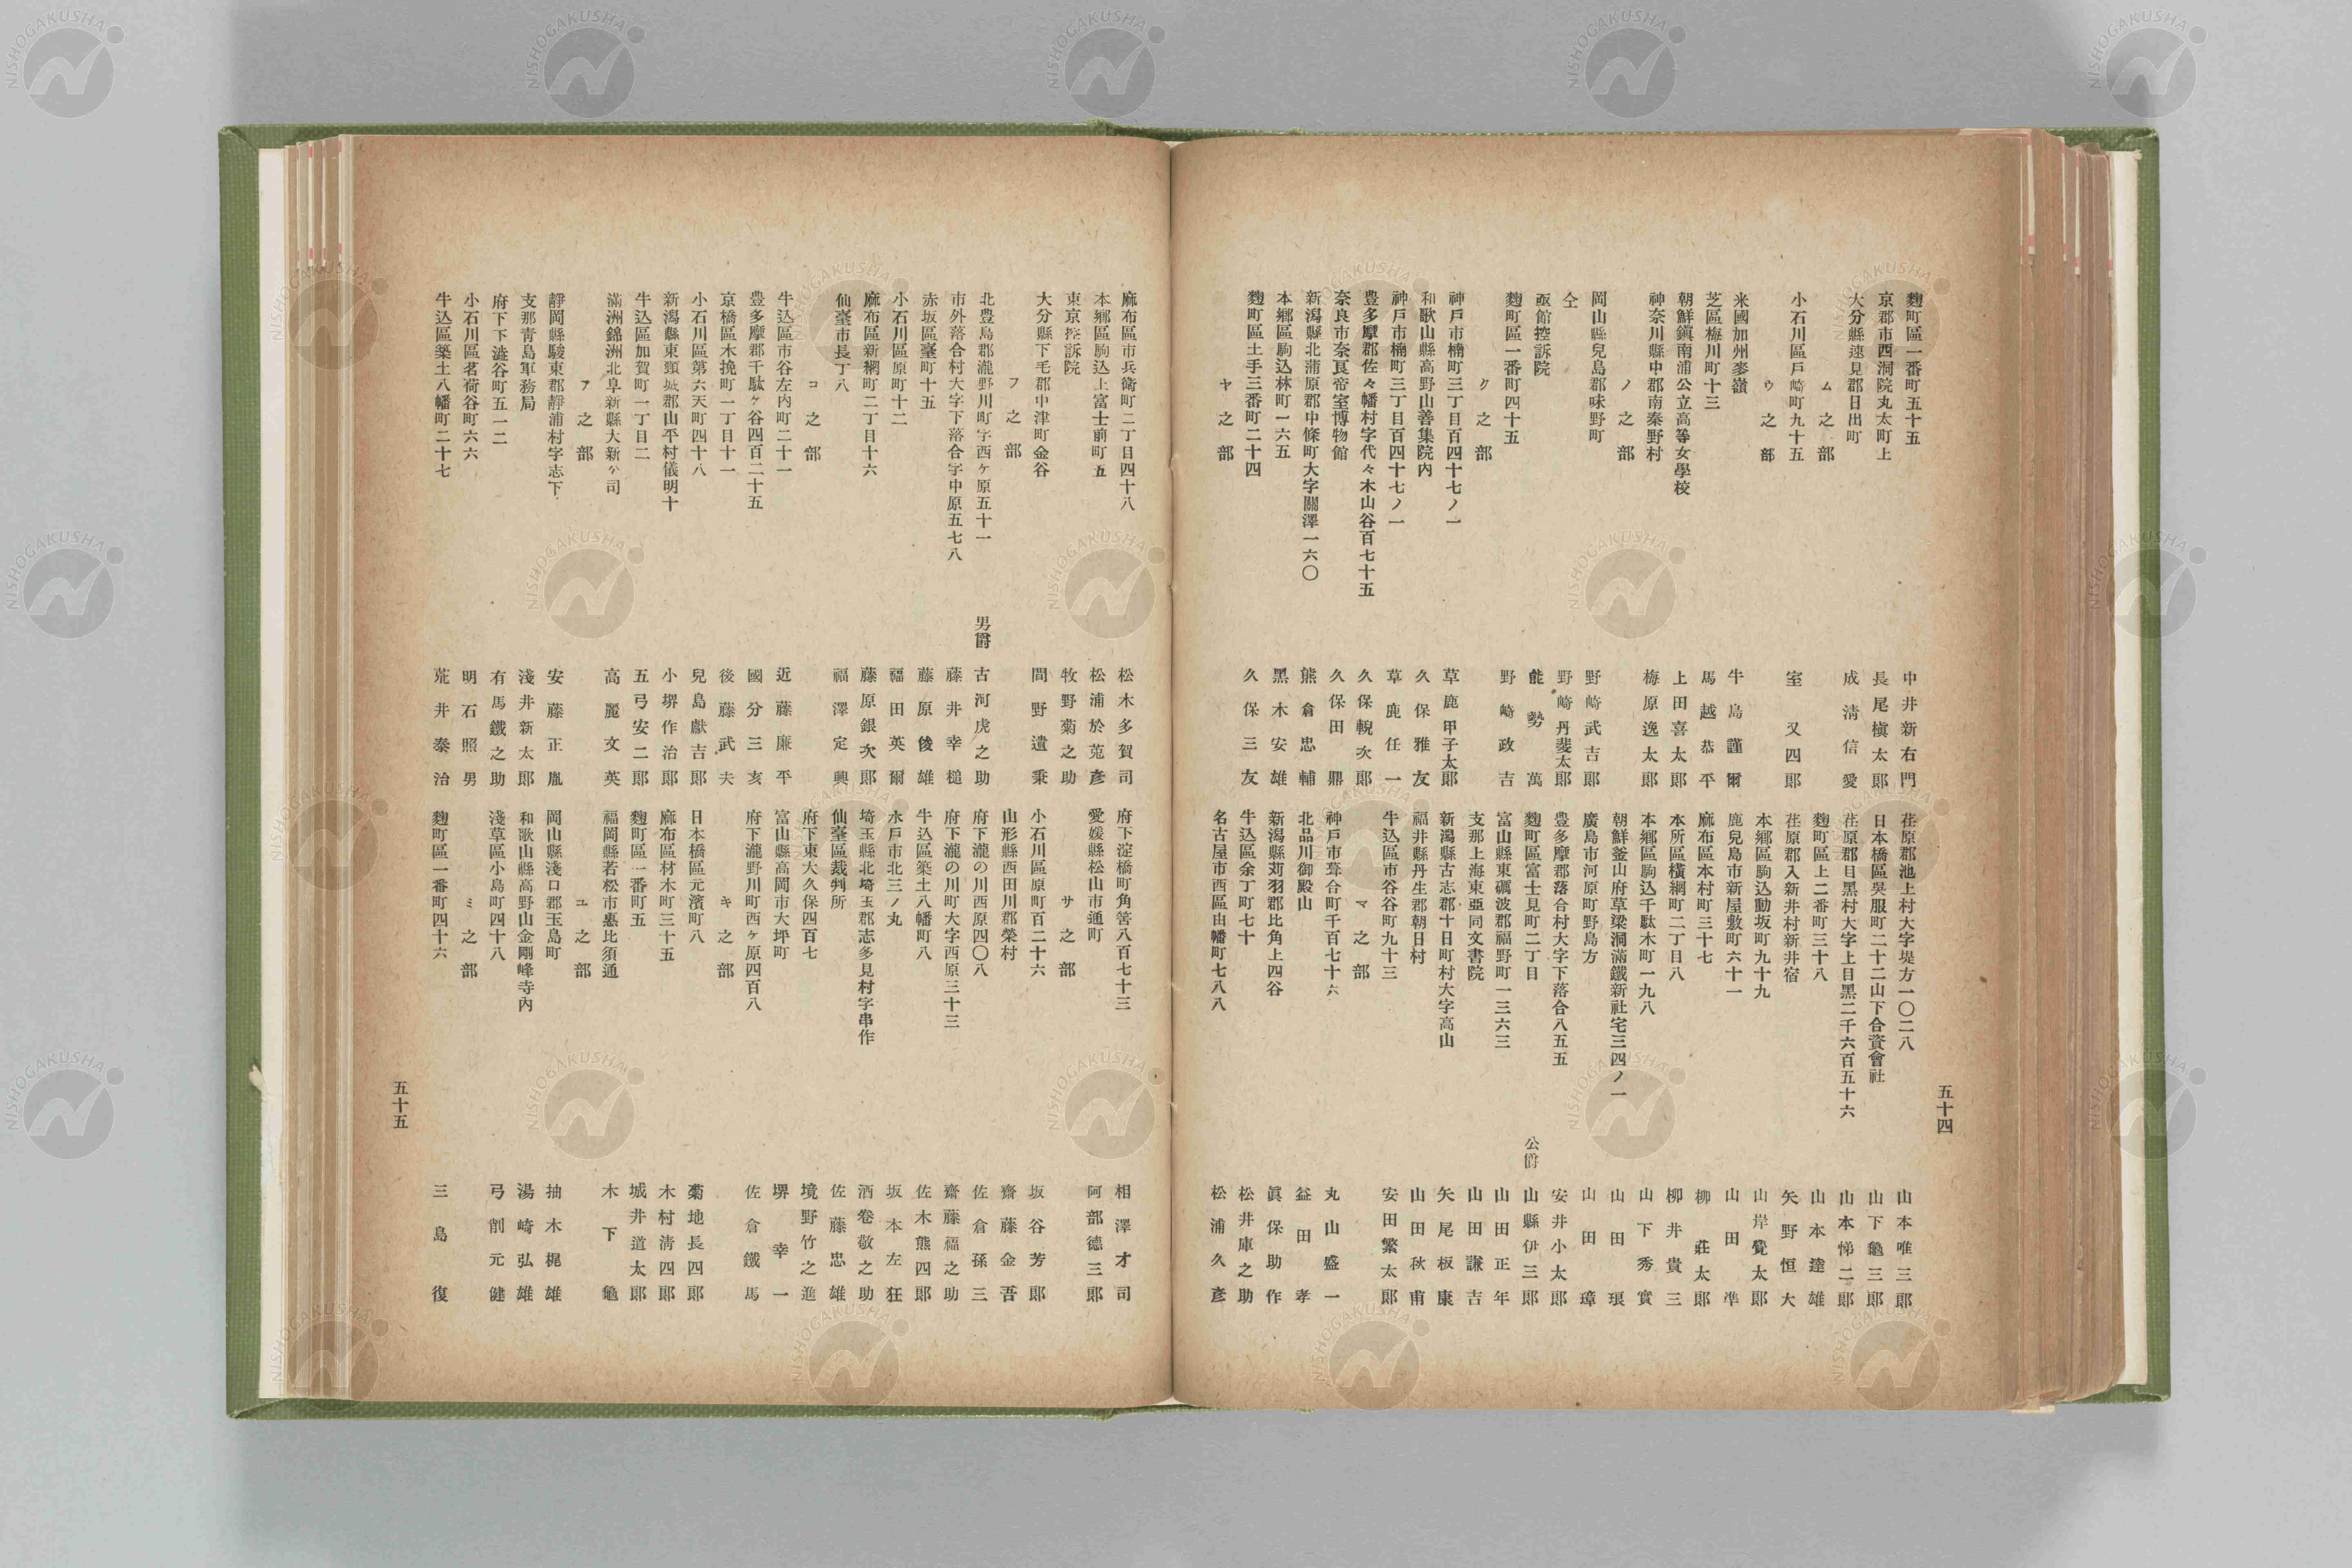 麴町區一番町五十五 中井新右門
京都市西洞院丸太町上 長尾槇太郞
大分縣速見郡日出町 成清信愛
ム之部
小石川區戶崎町九十五 室又四郞
ウ之部
米國加州麥嶺 牛島謹爾
芝區梅川町十三 馬越恭平
朝鮮鎭南浦公立高等女學校 上田喜太郞
神奈川縣中郡南秦野村 梅原逸太郞
ノ之部
岡山縣兒島郡味野町 野崎武吉郞
仝 野崎丹斐太郞
凾館控訴院 能勢萬
麴町區一番町四十五 野崎政吉
ク之部
神戶市楠町三丁目百四十七ノ一 草鹿甲子太郞
和歌山縣高野山善集院內 久保雅友
神戶市楠町三丁目百四十七ノ一 草鹿任一
豊多摩郡佐々幡村字代々木山谷百七十五 久保輗次郞
奈良市奈良帝室博物館 久保田鼎
新潟縣北蒲原郡中條町大字關澤一六〇 熊倉忠輔
本鄕區駒込林町一六五 黑木安雄
麴町區土手三番町二十四 久保三友
ヤ之部
荏原郡池上村大字堤方一〇二八 山本唯三郞
日本橋區吳服町二十二山下合資會社 山下龜三郞
荏原郡目黑村大字上目黑二千六百五十六 山本悌二郞
麴町區上二番町三十八 山本達雄
荏原郡入新井村新井宿 矢野恒太
本鄕區駒込動坂町九十九 山岸覺太郞
鹿兒島市新屋敷町六十一 山田準
麻布區本村町三十七 柳莊太郞
本所區橫網町二丁目八 柳井貴三
本鄕區駒込千駄木町一九八 山下秀實
朝鮮釜山府草梁洞滿鐵新社宅三四ノ一 山田珢
廣島市河原町野島方 山田璋
豊多摩郡落合村大字下落合八五五 安井小太郞
麴町區富士見町二丁目 公爵 山縣伊三郞
富山縣東礪波郡福野町一三六三 山田正年
支那上海東亞同文書院 山田謙吉
新潟縣古志郡十日町村大字高山 矢尾板康
福井縣丹生郡朝日村 山田秋甫
牛込區市谷谷町九十三 安田繁太郞
マ之部
神戶市葺合町千百七十六 丸山盛一
北品川御殿山 益田孝
新潟縣苅羽郡比角上四谷 眞保助作
牛込區余丁町七十 松井庫之助
名古屋市西區由幡町七八八 松浦久彥
五十四
麻布區市兵衞町二丁目四十八 松木多賀司
本鄕區駒込上富士前町五 松浦於菟彥
東京控訴院 牧野菊之助
大分縣下毛郡中津町金谷 間野遺秉
フ之部
北豊島郡瀧野川町字西ケ原五十一 男爵 古河虎之助
市外落合村大字下落合字中原五七八 藤井幸槌
赤坂區臺町十五 藤原俊雄
小石川區原町十二 福田英爾
麻布區新網町二丁目十六 藤原銀次郞
仙臺市長丁八 福澤定興
コ之部
牛込區市谷左內町二十一 近藤廉平
豊多摩郡千駄ケ谷四百二十五 國分三亥
京橋區木挽町一丁目十一 後藤武夫
小石川區第六天町四十八 兒島獻吉郞
新潟縣東頸城郡山平村儀明十 小堺作治郞
牛込區加賀町一丁目二 五弓安二郞
滿洲錦洲北阜新縣大新公司 高麗文英
ア之部
靜岡縣駿東郡靜浦村字志下 安藤正胤
支那靑島軍務局 淺井新太郞
府下下澁谷町五一二 有馬鐵之助
小石川區茗荷谷町六六 明石照男
牛込區築土八幡町二十七 荒井泰治
府下淀橋町角筈八百七十三 相澤才司
愛媛縣松山市通町 阿部德三郞
サ之部
小石川區原町百二十六 坂谷芳郞
山形縣西田川郡榮村 齋藤金吾
府下瀧の川西原四〇八 佐倉孫三
府下瀧の川町大字西原三十三 齋藤福之助
牛込區築土八幡町八 佐木熊四郞
水戶市北三ノ丸 坂本左狂
埼玉縣北埼玉郡志多見村字串作 酒卷敬之助
仙臺區裁判所 佐藤忠雄
府下東大久保四百七 境野竹之進
富山縣高岡市大坪町 堺幸一
府下瀧野川町西ケ原四百八 佐倉鐵馬
キ之部
日本橋區元濱町八 菊地長四郞
麻布區材木町三十五 木村淸四郞
麴町區一番町五 城井道太郞
福岡縣若松市惠比須通 木下龜
ユ之部
岡山縣淺口郡玉島町 抽木梶雄
和歌山縣高野山金剛峰寺內 湯崎弘雄
淺草區小島町四十八 弓削元健
ミ之部
麴町區一番町四十六 三島復
五十五